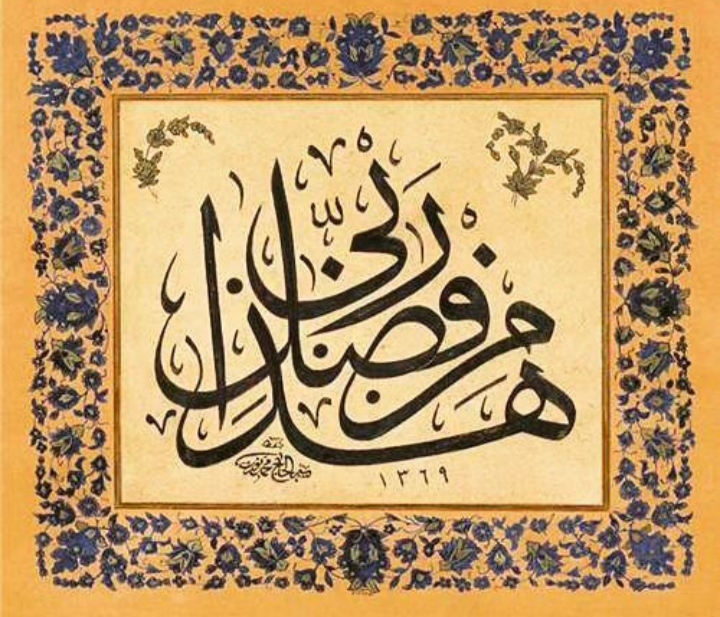 هذا من فضل ربي
١٣٦٩